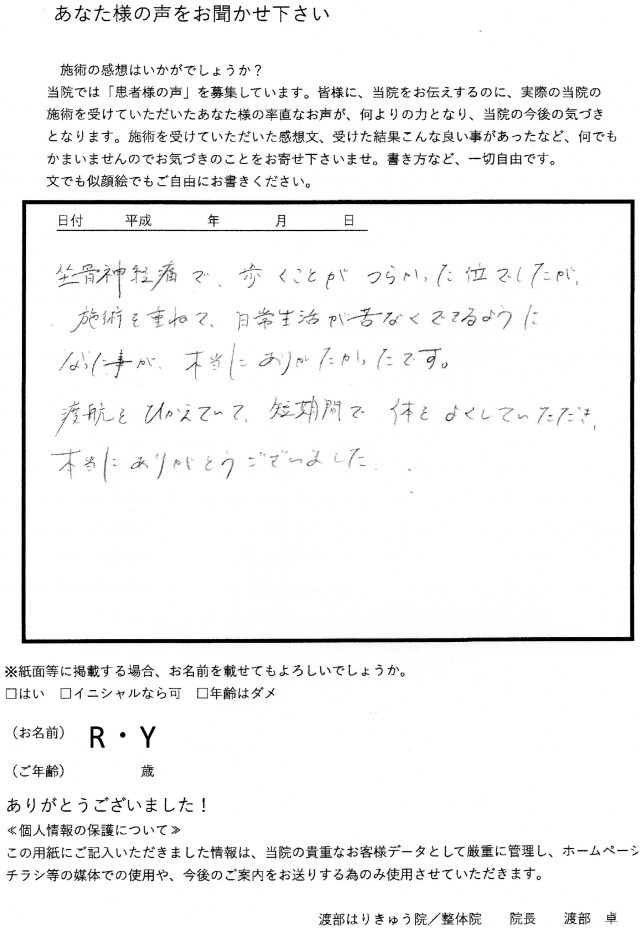 あなた様の声をお聞かせ下さい
施術の感想はいかがでしょうか？
当院では「患者様の声」を募集しています。皆様に、当院をお伝えするのに、実際の当院の
施術を受けていただいたあなた様の率直なお声が、何よりの力となり、当院の今後の気づき
となります。施術を受けていただいた感想文、受けた結果こんな良い事があったなど、何でも
かまいませんのでお気づきのことをお寄せ下さいませ。書き方など、一切自由です。
文でも似顔絵でもご自由にお書きください。
日付　平成　年　月　日
坐骨神経痛で、歩くことが つらかった位でしたが、
施術を重ねて、日常生活が苦なくできるように
なった事が、本当に ありがたかったです。
渡航を ひかえていて、短期間で 体を よくしていただき、
本当に ありがとうございました．
※紙面等に掲載する場合、お名前を載せてもよろしいでしょうか。
□はい □イニシャルなら可 □年齢はダメ
（お名前） R・Y
（ご年齢） 歳
ありがとうございました！
≪個人情報の保護について≫
この用紙にご記入いただきました情報は、当院の貴重なお客様データとして厳重に管理し、ホームページ
チラシ等の媒体での使用や、今後のご案内をお送りする為のみ使用させていただきます。
渡部はりきゅう院／整体院　院長　渡部　卓